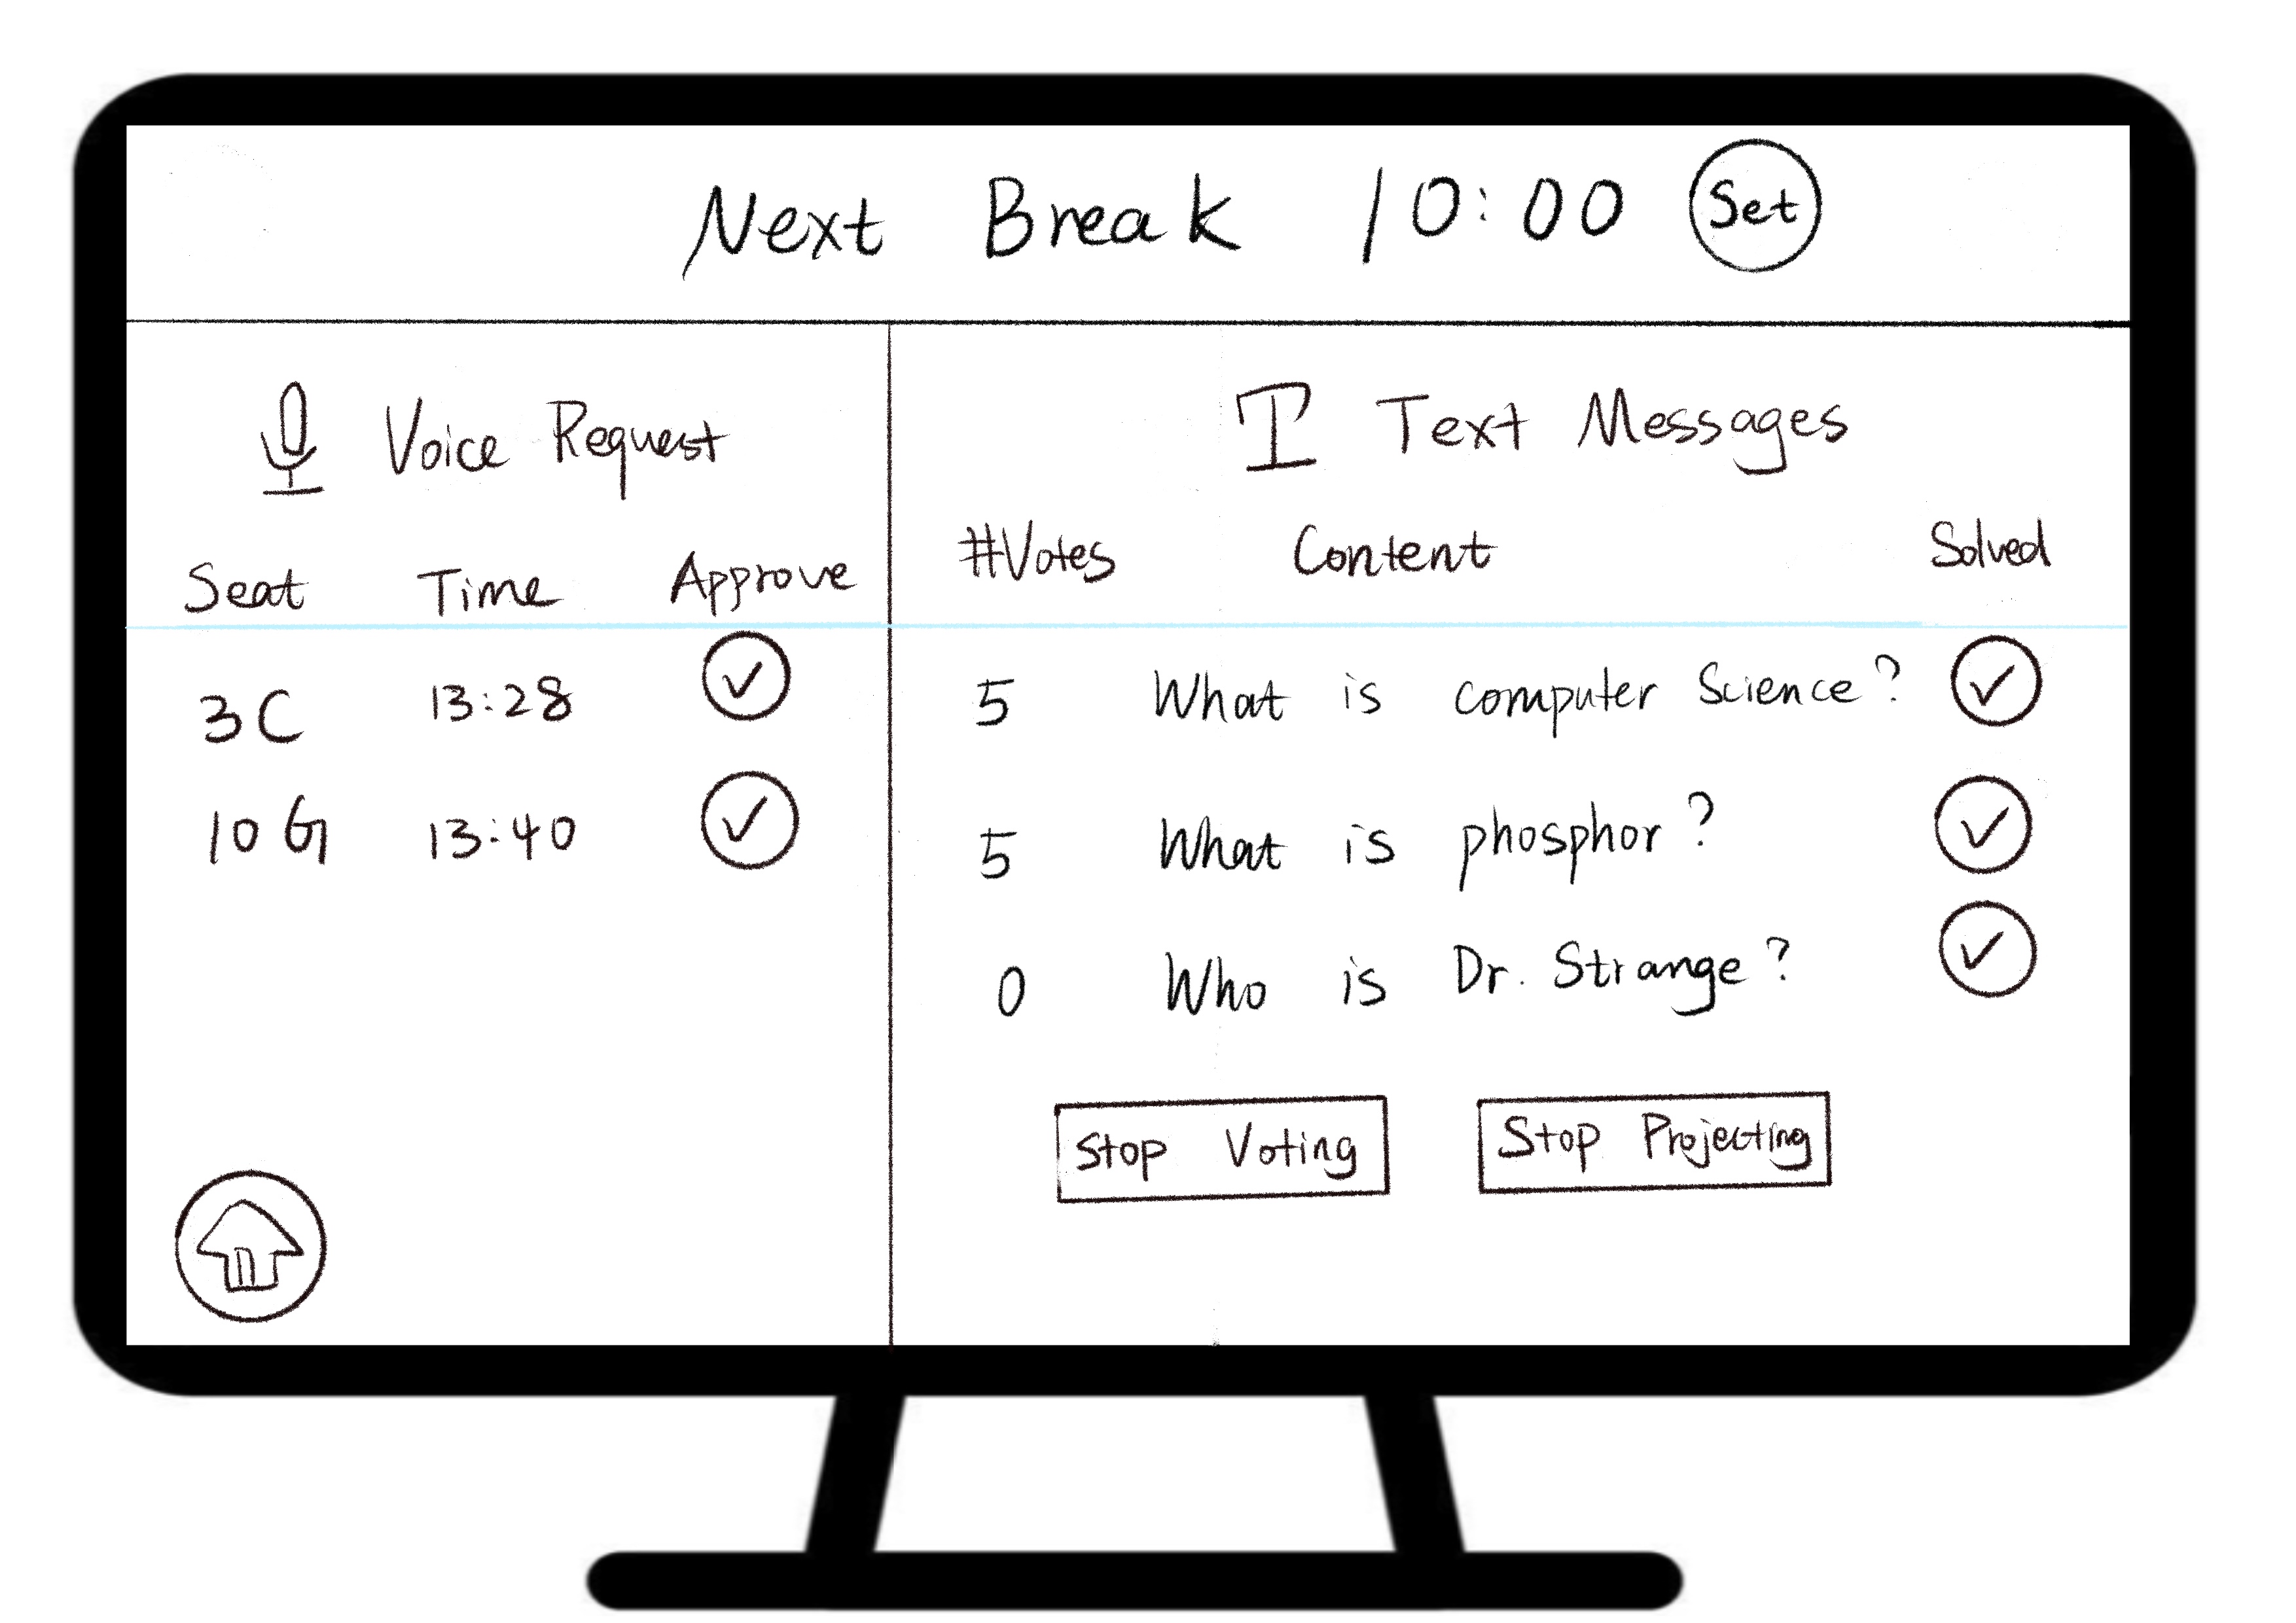 Next Break 10:00 Set
Voice Request
Seat Time Approve
3C 13:28
10G 13:40
T Text Messages
#Votes Content Solved
5 What is computer Science?
5 What is phosphor?
0 Who is Dr. Strange?
Stop Voting Stop Projecting